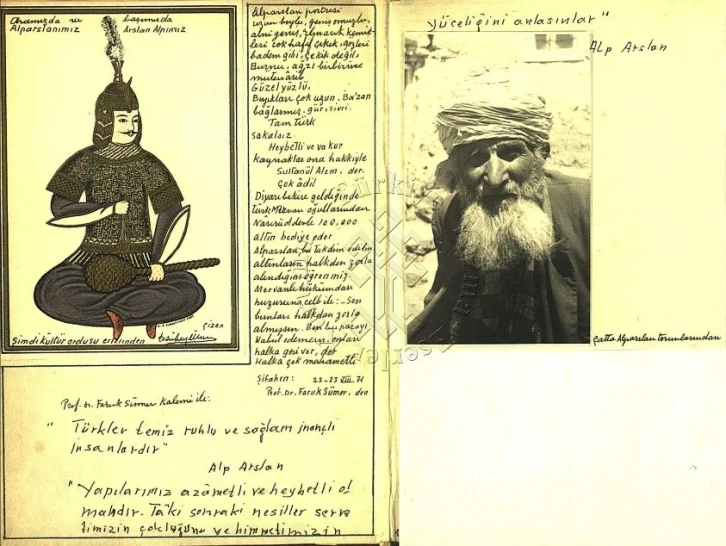 Aramızda ve başımızda
Alparslanımız Arslan Alpımız
Çizen
Şimdi kültür ordusu erlerinden
Alparslan portresi
uzun boylu, geniş omuzlu,
alnı geniş, elmacık kemik-
leri çok hafif çekik, gözleri
badem gibi, çekik değil.
Burnu, ağzı birbirine
mütenâsib
Güzel yüzlü.
Bıyıkları çok uzun, Ba'zan
bağlarmış, gür, sivri.
Tam türk
sakalsız
Heybetli ve vakur
Kaynaklar ona hakkiyle
Sultanül Alem, der.
Çok âdil
Diyarıbekire geldiğinde
türk Mervan oğullarından
Nasrüddevle 100.000
altın hediye eder
Alparslan, bu takdim edilen
altınların halkdan zorla
alındığını öğrenmiş
Mervanlı hükümdarı
huzuruna celb ile: -Sen
bunları halkdan zorla
almışsın. Ben bu parayı
kabul edemem, onları
halka geri ver, der
Halka çok muhametli
Şifahen: 22-23 VIII. 71
Prof. Dr. Faruk Sümer, den
Prof. Dr. Faruk Sümer Kalemi ile:
"Türkler temiz ruhlu ve sağlam inançlı
insanlardır"
Alp Arslan
"Yapılarımız azâmetli ve heybetli ol
malıdır. Tâki sonraki nesiller serve
timizin çokluğunu ve himmetimizin
yüceliğini anlasınlar"
Alp Arslan
Çatta Alparslan torunlarından